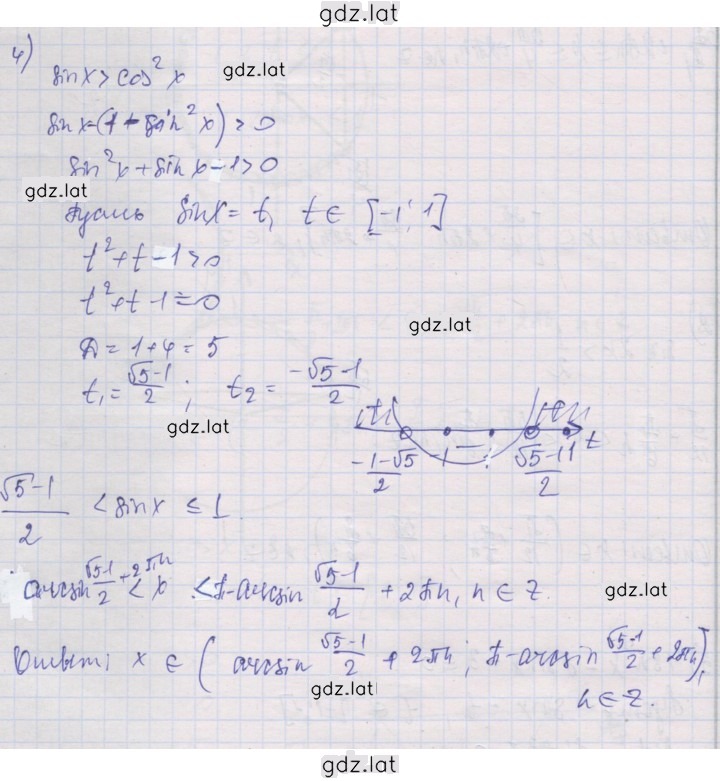 gdz.lat
4)
sinx > cos²x
gdz.lat
sinx-(1-sin²x)>0
sin²x+sinx-1>0
gdz.lat
Пусть sinx = t, t ∈ [-1; 1]
t²+t-1>0
t²+t-1=0
gdz.lat
D = 1+4 = 5
t₁ = (√5-1)/2 ; t₂ = (-√5-1)/2
gdz.lat
t
(-1-√5)/2 -1 (√5-1)/2 1
(√5-1)/2 < sinx ≤ 1.
arcsin (√5-1)/2 + 2πn < x < π-arcsin (√5-1)/2 + 2πn, n ∈ Z.
gdz.lat
Ответ: x ∈ (arcsin (√5-1)/2 + 2πn ; π-arcsin (√5-1)/2 + 2πn),
gdz.lat
n ∈ Z.
gdz.lat